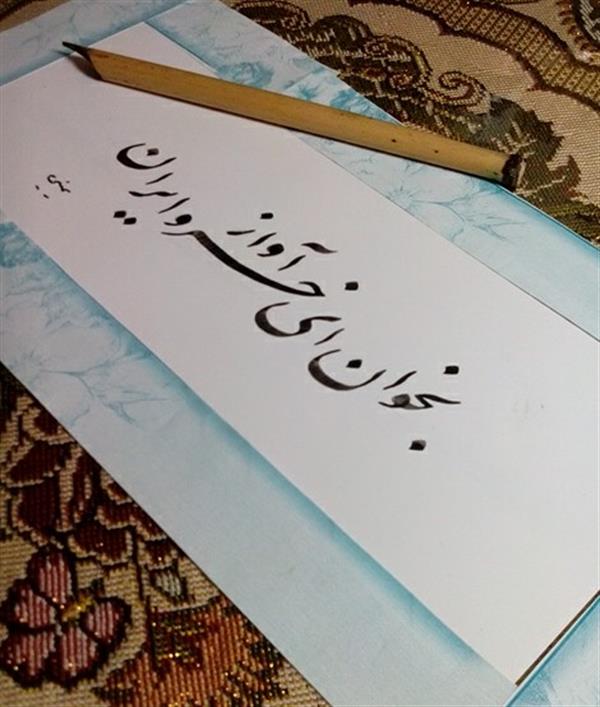 بخوان ای خسرو آواز ایران